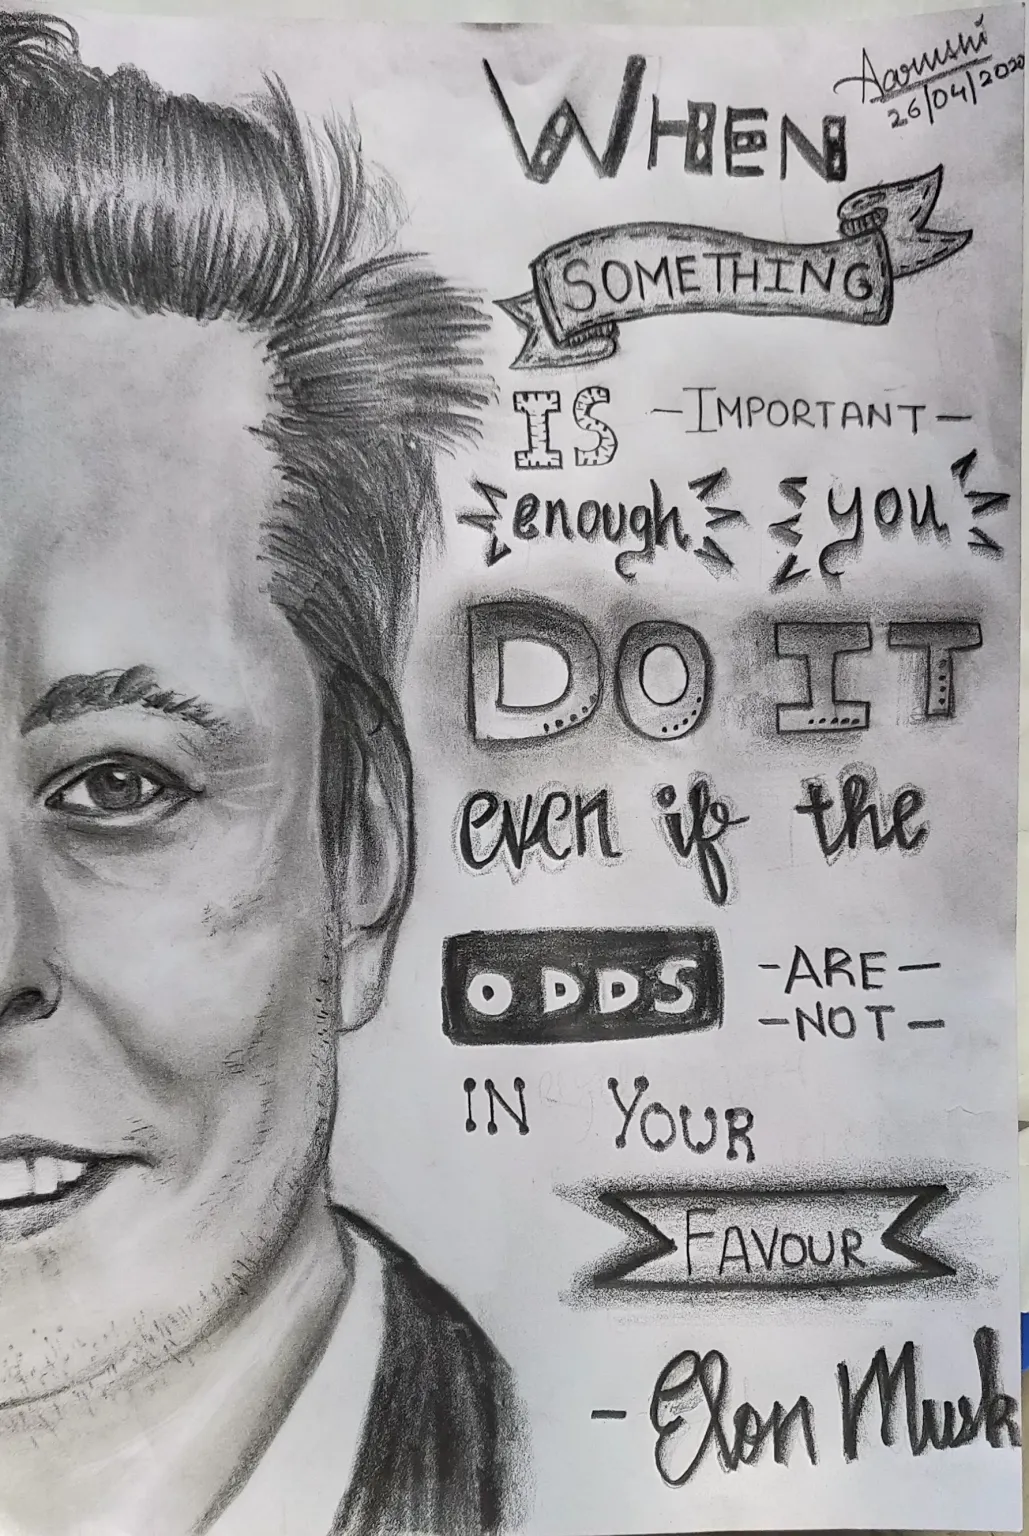 Aarushi
26/04/2020
WHEN
SOMETHING
IS -IMPORTANT-
enough you
DO IT
even if the
ODDS -ARE-
-NOT-
IN YOUR
FAVOUR
- Elon Musk